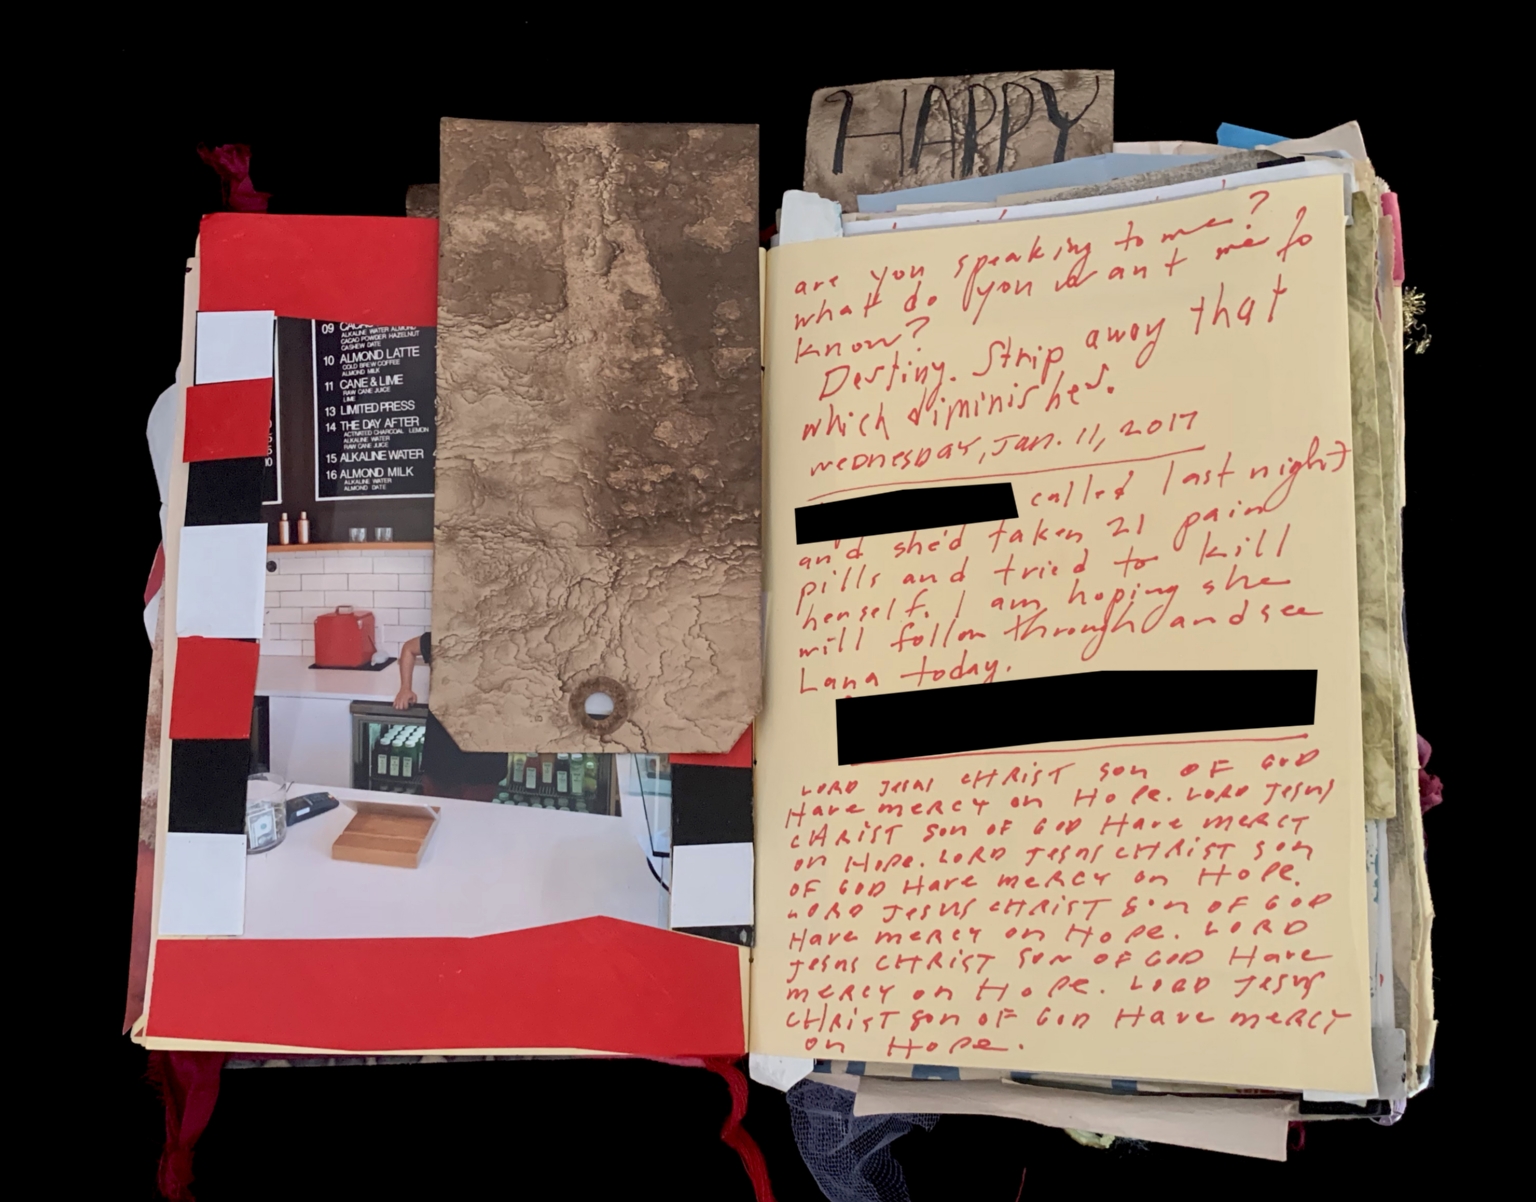 HAPPY
09 CACAO
ALKALINE WATER ALMOND
CACAO POWDER HAZELNUT
CASHEW DATE
10 ALMOND LATTE
COLD BREW COFFEE
ALMOND MILK
11 CANE & LIME
RAW CANE JUICE
LIME
13 LIMITED PRESS
14 THE DAY AFTER
ACTIVATED CHARCOAL LEMON
ALKALINE WATER
RAW CANE JUICE
15 ALKALINE WATER
16 ALMOND MILK
ALKALINE WATER
ALMOND DATE
are you speaking to me?
what do you want me to
know?
Destiny. Strip away that
which diminishes.
WEDNESDAY, JAN. 11, 2017
called last night
and she'd taken 21 pain
pills and tried to kill
herself. I am hoping she
will follow through and see
Lana today.
LORD JESUS CHRIST SON OF GOD
Have mercy on Hope. LORD JESUS
CHRIST SON OF GOD Have mercy
on Hope. LORD JESUS CHRIST SON
OF GOD Have mercy on Hope.
LORD JESUS CHRIST SON OF GOD
Have mercy on Hope. LORD
JESUS CHRIST SON OF GOD Have
mercy on Hope. LORD JESUS
CHRIST SON OF GOD Have mercy
on Hope.